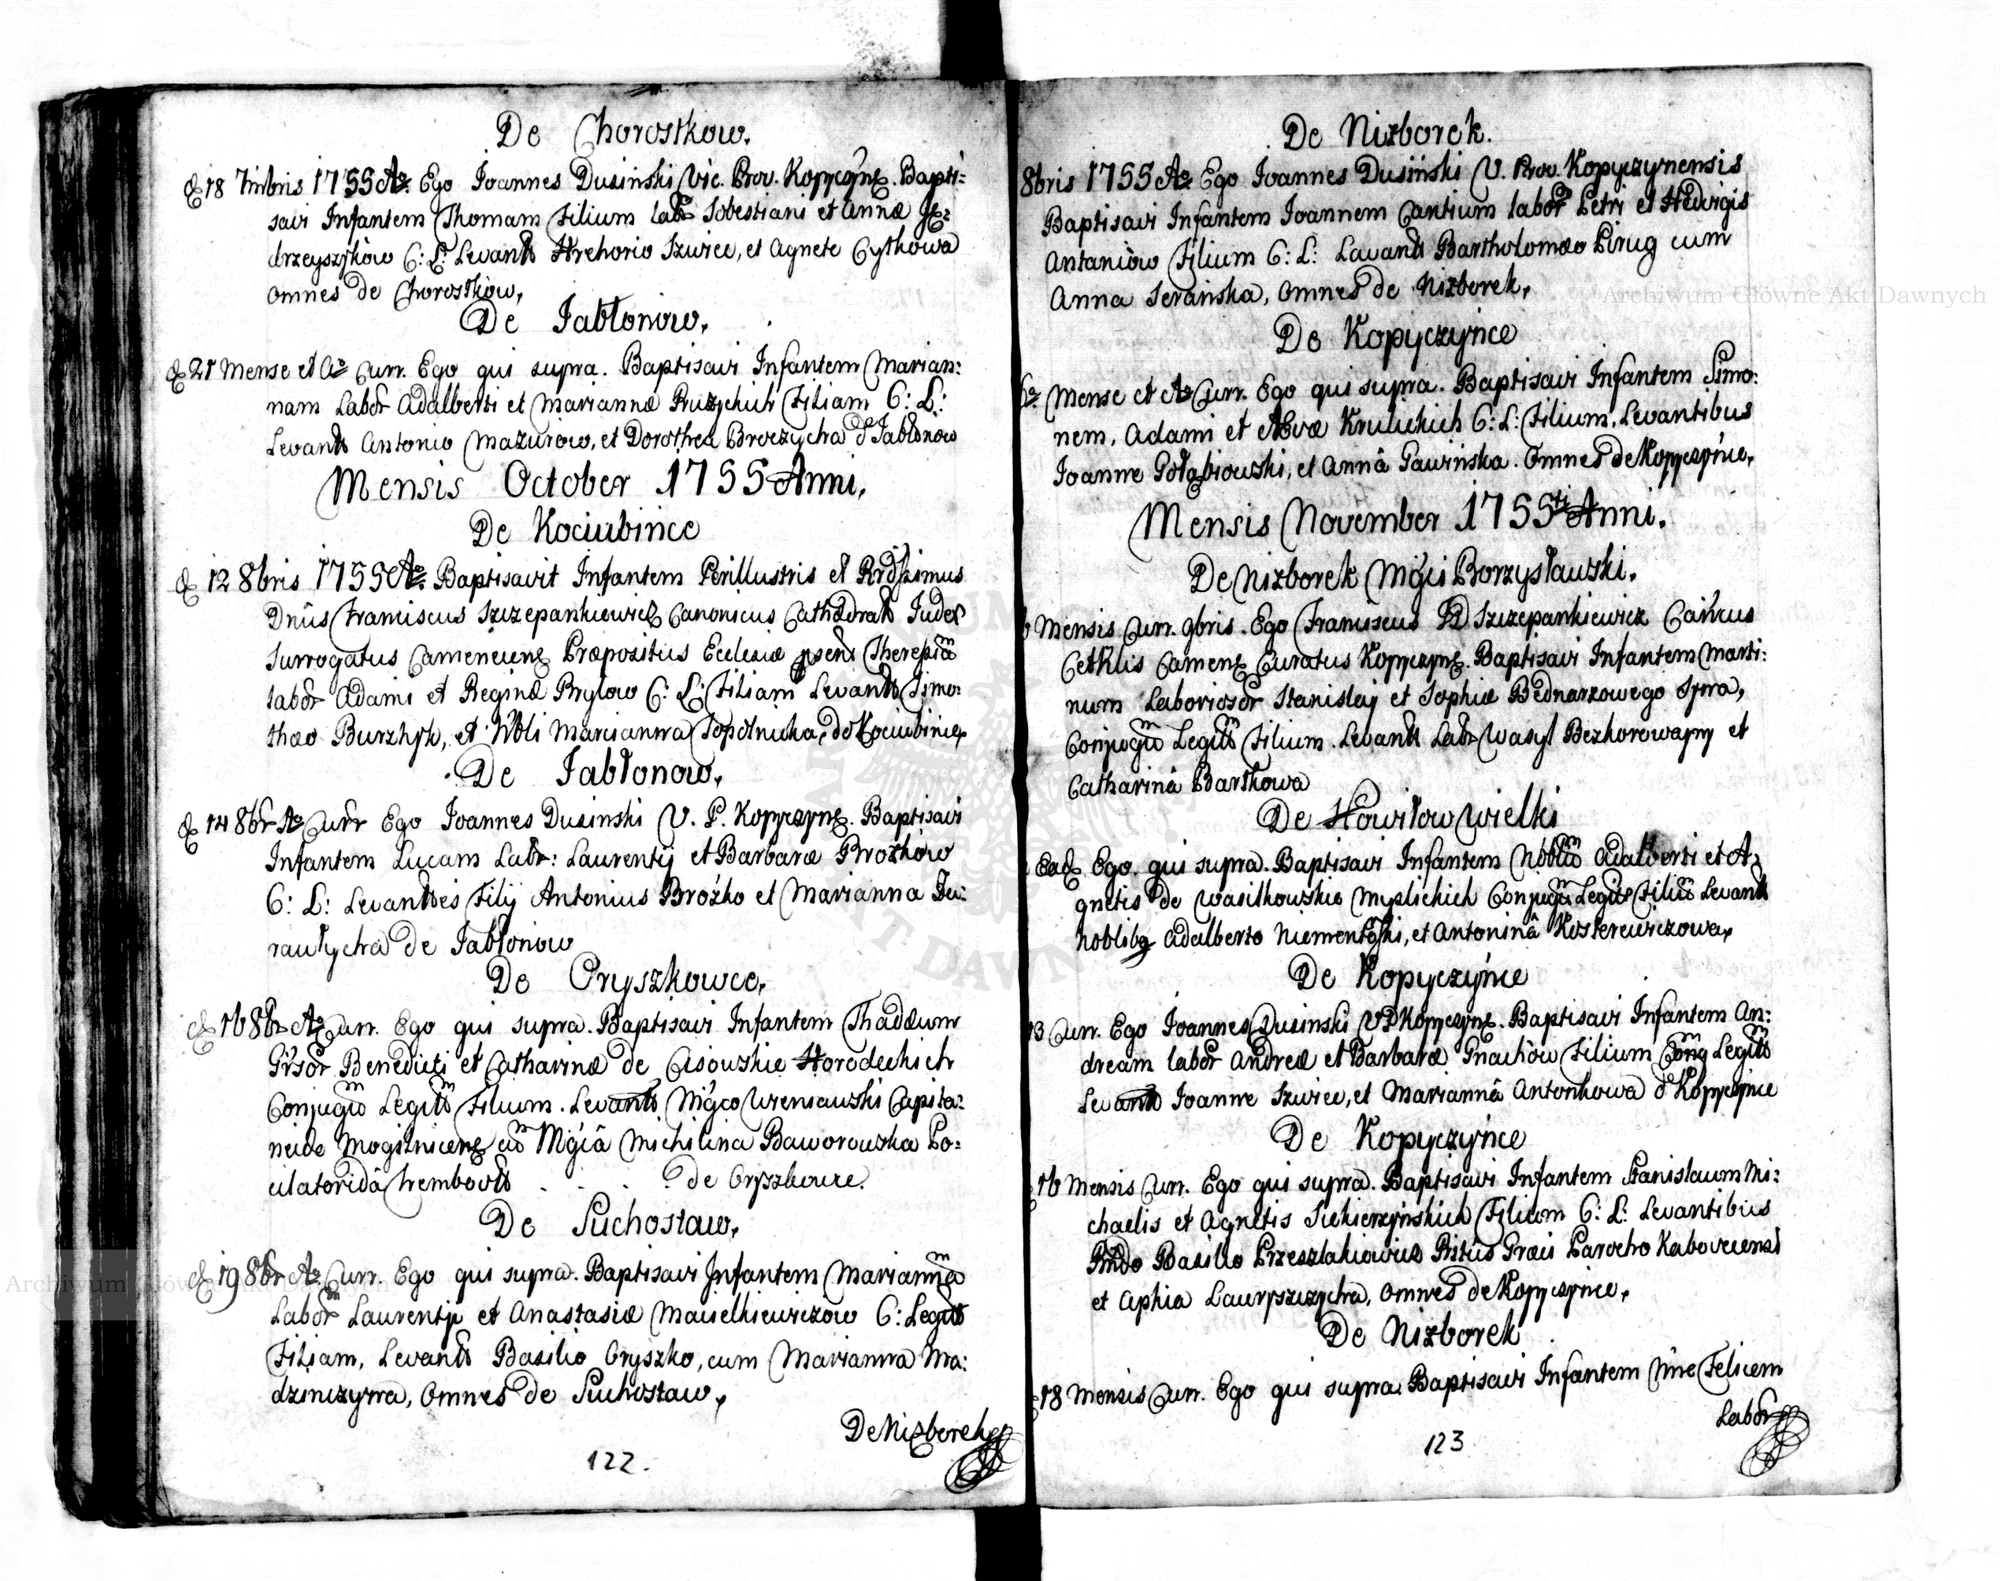 De Chorostkow.
d 18 7mbris 1755 Ao. Ego Joannes Dusinski Vic. Prov. Kopyczyne. Bapti:
savi Infantem Thomam Filium labr Sobestiani et Annæ Ję:
drzeyszyków C: L: Levantb Hrehorio Szwiec, et Agnete Cytkowa
omnes de Chorostkow,
De Jabłonow,
d 21 Mense et Ao Curr. Ego qui supra. Baptisavi Infantem Marian:
nam Labor Adalberti et Mariannæ Filiam C: L:
Levantb Antonio Mazurow, et Dorothea d Jabłonow
Mensis October 1755 Anni,
De Kociubince
d 12 8bris 1755 Ao Baptisavit Infantem Perillustris et Rrdssimus
Dnus Franciscus Szczepankiewicz Canonicus Cathedralis Judex
Surrogatus Camenecens Præpositus Ecclesiæ psens Theresiam
labor Adami et Reginæ Brylow C: L: Filiam Levantb Timo:
thæo Burzhyk, et Nbli Marianna Sopotnicka, de Kociubince,
De Jabłonow,
d 14 8br Ao Curr Ego Joannes Dusinski V. P. Kopyczyne. Baptisavi
Infantem Lucam Labr: Laurentij et Barbaræ Brożkow
C: L: Levanttes Filij Antonius Brożko et Marianna Ju:
rawłycha de Jabłonow
De Oryszkowce,
d 16 8br Ao Curr. Ego qui supra. Baptisavi Infantem Thadæum
Gnsor Benedicti et Catharinæ de Cisowskie Horodeckich
Conjugum Legitm Filium. Levantb Mgco Wieniawski Capita:
neide Mogilnicens cum Mgia Michilina Baworowska Po:
cilatorida Trembovls . . . . de Oryszkowce.
De Suchostaw,
d 19 8br Ao. Curr. Ego qui supra. Baptisavi Infantem Mariannam
Labor Laurentij et Anastasiæ Macielkiewiczow C: Legitm
Filiam, Levantb Basilio Oryszko, cum Marianna Ma:
dzinczyna, omnes de Suchostaw,
De Nizborek
122.
De Nizborek.
8bris 1755 Ao. Ego Joannes Dusiński V. Prov. Kopyczynensis
Baptisavi Infantem Joannem Cantium labor Petri et Hedvigis
Antaniów Filium C: L: Lavantb Bartholomæo Pirug cum
Anna Serańska, omnes de Nizborek,
De Kopyczyńce
Mense et Ao Curr. Ego qui supra. Baptisavi Infantem Simo:
nem, Adami et Evæ Krulickich C: L: Filium, Levantibus
Joanne Gołąbiowski, et Annâ Gawińska. Omnes de Kopyczyńce,
Mensis November 1755ti Anni,
De Nizborek Mgci Borzysławski,
Mensis Curr. 9bris. Ego Franciscus Szczepankiewicz Cańcus
Cethlis Camene Curatus Kopyczyne. Baptisavi Infantem Marti:
num Laboriosor Stanislaj et Sophiæ Bednarzowego Syna,
Conjugum Legitm Filium. Levantb Labr Wasyl Bezkorowajny et
Catharinâ Bartkowa
De Howiłow Wielki
Ead Ego qui supra. Baptisavi Infantem Nbblium Adalberti et A:
gnetis de Wasilkowskie Myslickich Conjugum Legitm Filium Levantb
Nobliby Adalberto Niementoski, et Antoninâ Kosterewiczowa,
De Kopyczyńce
13 Curr. Ego Joannes Dusinski VP Kopyczyne. Baptisavi Infantem An:
dream labor Andreæ et Barbaræ Gnachów Filium Cong Legitm
Levantb Joanne Szwiec, et Mariannâ Antonkowa d Kopyczyńce
De Kopyczyńce
16 Mensis Curr. Ego qui supra. Baptisavi Infantem Stanislaum Mi:
chaelis et Agnetis Siekierzyńskich Filium C: L: Levantibus
Rndo Basilio Przeszlakiowicz Ritus Græci Parocho
et Aphia Lauryszczycha, omnes de Kopyczyńce,
De Nizborek
18 Mensis Curr. Ego qui supra. Baptisavi Infantem Nine Felicem
Labor
123
Archiwum Główne Akt Dawnych
Archiwum Główne Akt Dawnych